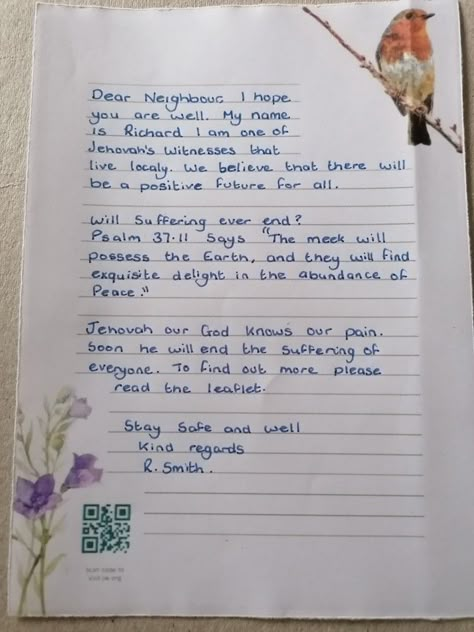 Dear Neighbour I hope
you are well. My name
is Richard I am one of
Jehovah's witnesses that
live localy. We believe that there will
be a positive future for all.
Will Suffering ever end?
Psalm 37.11 Says "The meek will
possess the Earth, and they will find
exquisite delight in the abundance of
Peace."
Jehovah our God knows our pain.
Soon he will end the suffering of
everyone. To find out more please
read the leaflet.
Stay Safe and well
Kind regards
R. Smith.
Scan code to
visit jw.org